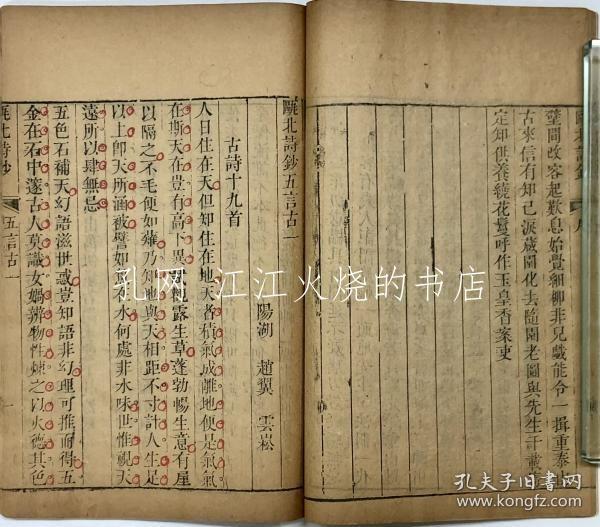 葉間改容起歎息始覺細柳非兒戲能令一揖重泰山
古來信有知己淚歲園化去隨園老圖與先生千載
定知供養繞花鬘呼作玉皇香案吏
甌北詩鈔五言古一
陽湖 趙翼 雲崧
古詩十九首
人日住在天但知住在地天者積氣成離地便是氣氣
在斯天在豈有高下異
露生草蓬勃暢生意有屋
以隔之不毛便如薙乃知地與天相距不寸計人生足
以上即天所涵被譬如魚在水何處非水味世惟視天
遠所以肆無忌
五色石補天幻語滋世惑豈知語非幻理可推而得五
金在石中邃古人莫識女媧辨物性煉之以火德其色
甌北詩鈔
五言古一
一
孔网 江江火烧的书店
孔夫子旧书网
www.kongfz.com